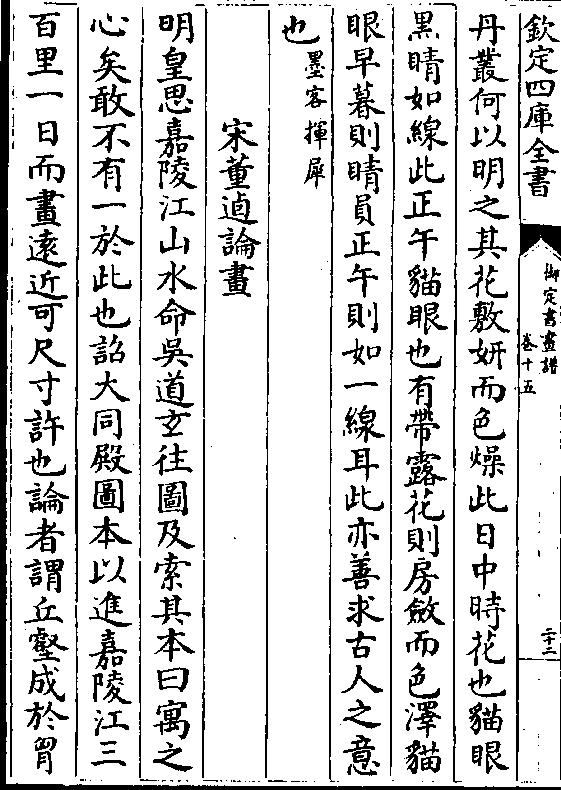 欽定四庫全書
御定書畫譜
卷十五
二十二
丹叢何以明之其花敷妍而色燥此日中時花也貓眼
黑睛如線此正午貓眼也有帶露花則房斂而色澤貓
眼早暮則睛員正午則如一線耳此亦善求古人之意
也墨客揮犀
宋董逌論畫
明皇思嘉陵江山水命吳道𤣥往圖及索其本曰寓之
心矣敢不有一於此也詔大同殿圖本以進嘉陵江三
百里一日而畫遠近可尺寸許也論者謂丘壑成於胷